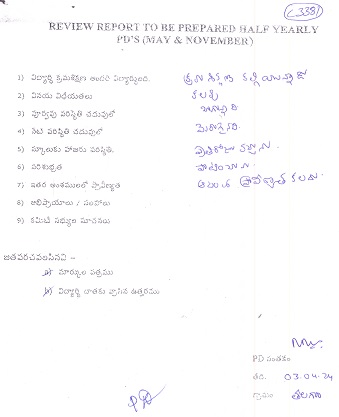 C-3381
REVIEW REPORT TO BE PREPARED HALF YEARLY
PD'S (MAY & NOVEMBER)
1) విద్యార్థి క్రమశిక్షణ అందరి విద్యార్థులది. క్రమశిక్షణ కల్గియున్నాడు
2) వినయ విధేయతలు కలవు
3) పూర్వపు పరిస్థితి చదువులో బాగున్నది
4) నేటి పరిస్థితి చదువులో మెరుగైనది.
5) స్కూలుకు హాజరు పరిస్థితి.
6) పరిశుభ్రత
7) ఇతర అంశములలో ప్రావీణ్యత ప్రావీణ్యత కలదు.
8) అభిప్రాయాలు / సలహాలు
9) కమిటీ సభ్యుల సూచనలు
జతపరచవలసినవి -
మార్కుల పత్రము
విద్యార్థి దాతకు వ్రాసిన ఉత్తరము
PD సంతకం
తేది. 03.04.24
గ్రామం